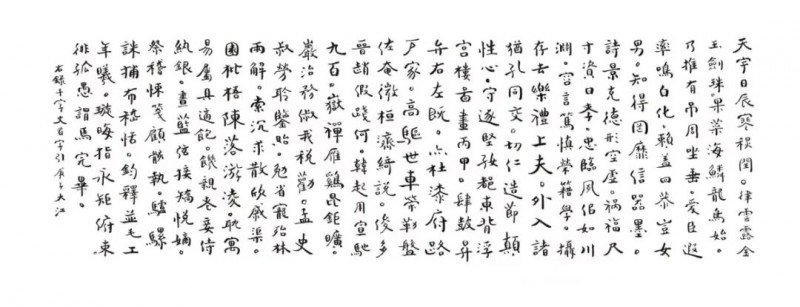 天宇日辰寒秋閏。律雲露金
玉劍珠果菜海鱗龍鳥始。
乃推有吊周坐垂。愛臣遐
率鳴白化。賴蓋四恭豈女
男。知得罔靡信器墨。
詩景克德形空虛。禍福尺
寸資曰孝。忠臨夙似如川
淵。容言篤慎榮籍學。攝
存去樂禮上夫。外入諸
猶孔同交。切仁造節顛
性心。守逐堅好都東背浮
宮樓啚畫丙甲。肆鼓昇
弁右左既。亦杜漆府路
戶家。高驅世車策勒磐
佐奄微桓濟綺說。俊多
晉趙假踐何。韓起用宣馳
九百。嶽禪雁鷄昆鉅曠。
巖治務俶我稅勸。孟史
叔勞聆鑒貽。勉省寵殆林
兩解。索沉求散欣慼渠。
園枇梧陳落游凌。耽寓
易屬具適飽。饑親老妾侍
紈銀。晝藍弦接矯悅嫡。
祭稽悚箋顧骸執。驢騾
誅捕布嵇恬。鈞釋並毛工
年曦。璇晦指永矩俯束
徘孤愚謂焉完畢。
右錄千字文百字引庚子大江